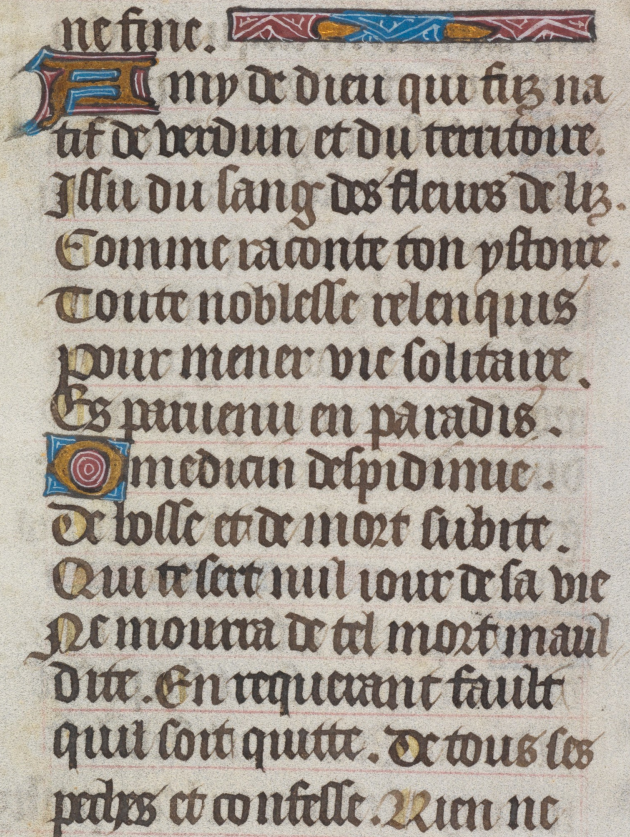 ne fine.
Amy de dieu qui fuz na
tif de verdun et du territoire.
Issu du sang des fleurs de liz.
Comme raconte ton ystoire.
Toute noblesse relenquis
pour mener vie solitaire.
Es paruenu en paradis.
O medicin despidimie.
De bosse et de mort subite.
Qui te sert nul iour de sa vie
Ne mourra de tel mort maul
dite. En requerant fault
quil soit quitte. De tous ses
peches et confesse. Rien ne